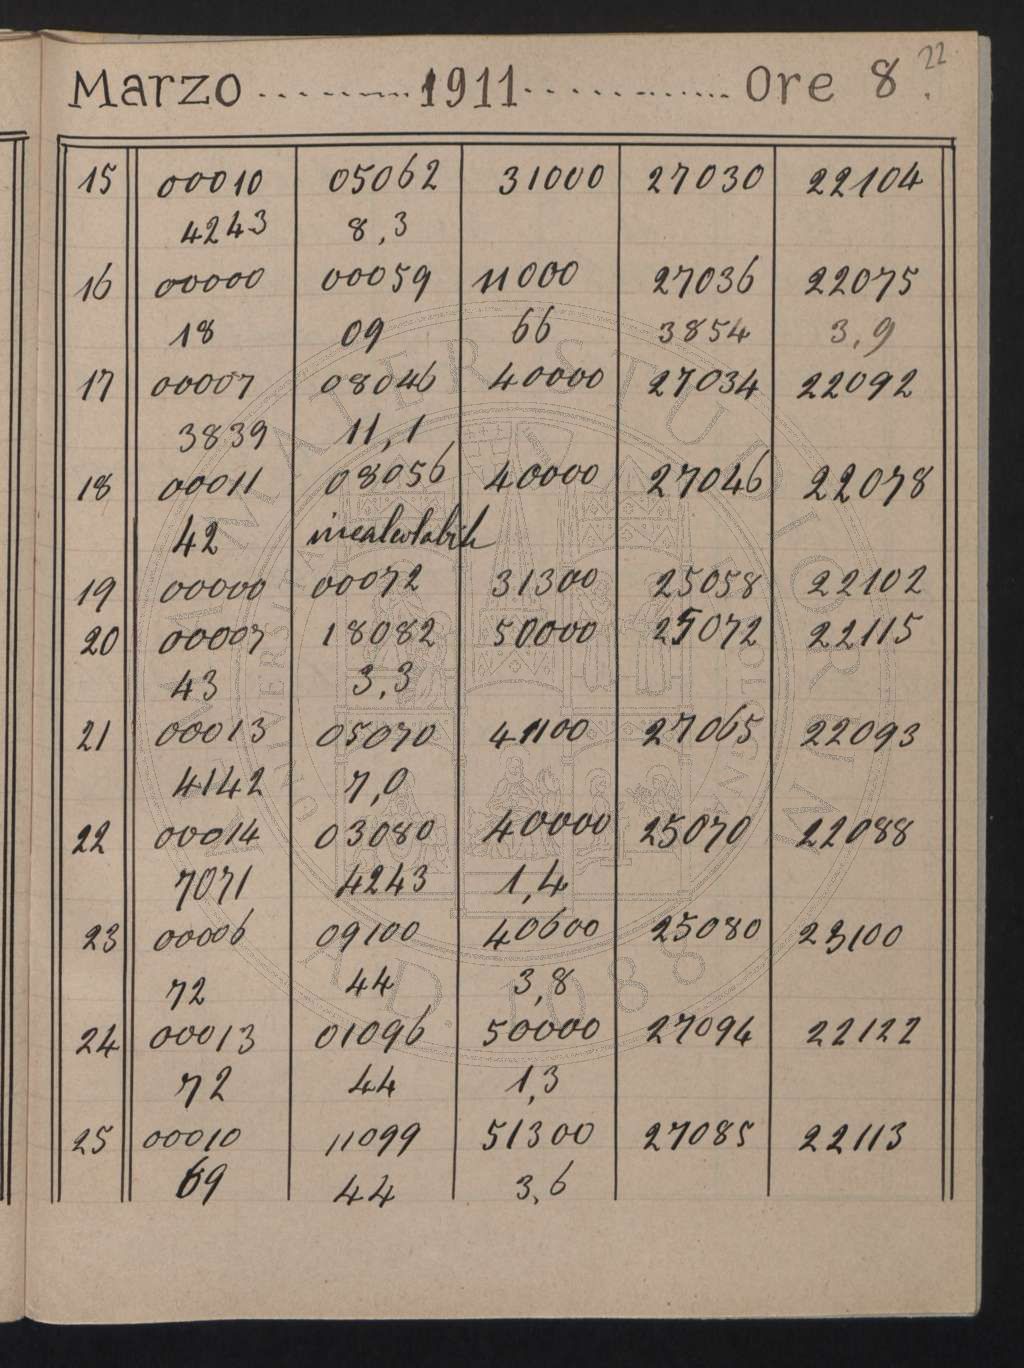 22
Marzo ............ 1911 ............ Ore 8.
15 00010 05062 31000 27030 22104
4243 8,3
16 00000 00059 11000 27036 22075
18 09 66 3854 3,9
17 00007 08046 40000 27034 22092
3839 11,1
18 00011 08056 40000 27046 22078
42 incalcolabile
19 00000 00072 31300 25058 22102
20 00007 18082 50000 25072 22115
43 3,3
21 00013 05070 41100 27065 22093
4142 7,0
22 00014 03080 40000 25070 22088
7071 4243 1,4
23 00006 09100 40600 25080 23100
72 44 3,8
24 00013 01096 50000 27094 22122
72 44 1,3
25 00010 11099 51300 27085 22113
69 44 3,6
ALMA MATER STUDIORUM
A.D. 1088